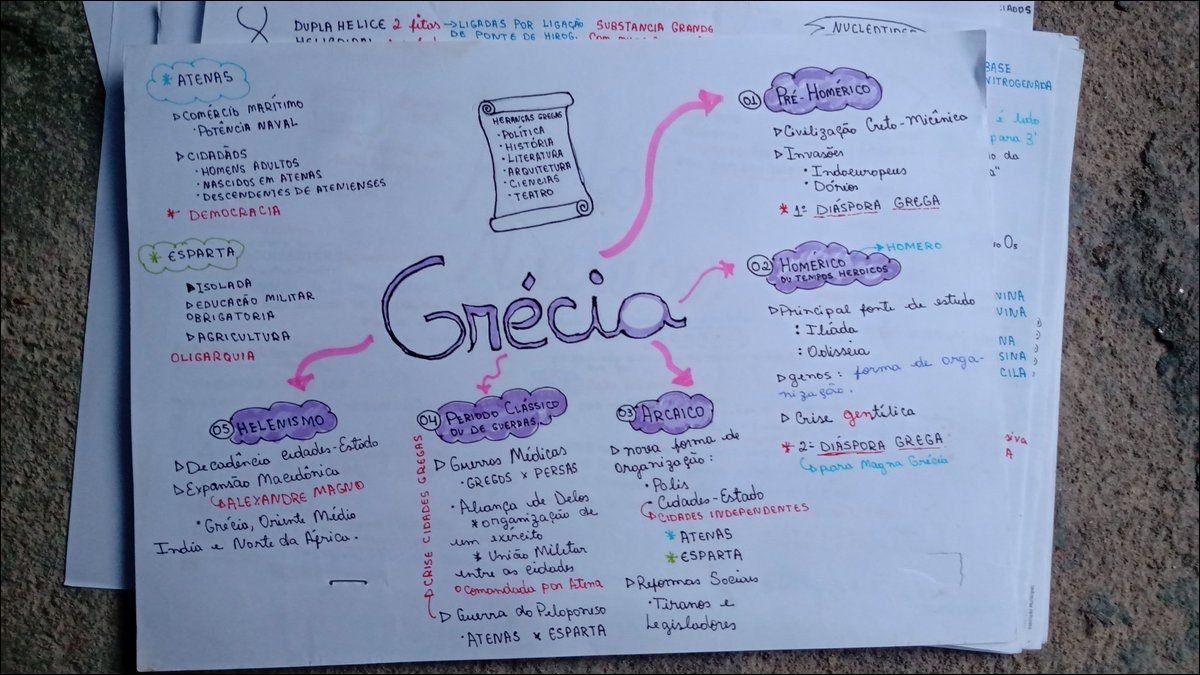 DUPLA HELICE 2 fitas → LIGADAS POR LIGAÇÃO
DE PONTE DE HIROG.
SUBSTANCIA GRANDE
* ATENAS
▷ COMÉRCIO MARÍTIMO
· POTÊNCIA NAVAL
▷ CIDADÃOS
· HOMENS ADULTOS
· NASCIDOS EM ATENAS
· DESCENDENTES DE ATENIENSES
* DEMOCRACIA
* ESPARTA
▷ ISOLADA
▷ EDUCAÇÃO MILITAR
OBRIGATORIA
▷ AGRICULTURA
OLIGARQUIA
HERANÇAS GREGAS
· POLÍTICA
· HISTÓRIA
· LITERATURA
· ARQUITETURA
· CIENCIAS
· TEATRO
Grécia
01 PRÉ-HOMÉRICO
▷ Civilização Creto-Micênica
▷ Invasões
· Indoeuropeus
· Dórios
* 1ª DIÁSPORA GREGA
02 HOMÉRICO → HOMERO
OU TEMPOS HEROICOS
▷ Principal fonte de estudo
: Ilíada
: Odisseia
▷ genos: forma de orga-
nização.
▷ Crise gentílica
* 2ª DIÁSPORA GREGA
↳ para Magna Grécia
03 ARCAICO
▷ nova forma de
organização:
· Polis
Cidades-Estado
↳ CIDADES INDEPENDENTES
* ATENAS
* ESPARTA
▷ Reformas Sociais
· Tiranos e
Legisladores
04 PERIODO CLÁSSICO
OU DE GUERRAS
▷ Guerras Médicas
· GREGOS x PERSAS
· Aliança de Delos
* organização de
um exército
* União Militar
entre as cidades
o comandada por Atena
▷ Guerra do Peloponeso
· ATENAS x ESPARTA
CRISE CIDADES GREGAS
05 HELENISMO
▷ Decadência cidades-Estado
▷ Expansão Macedônica
↳ ALEXANDRE MAGNO
· Grécia, Oriente Médio
India e Norte da Africa.
BASE
NITROGENADA
é lido
para 3'